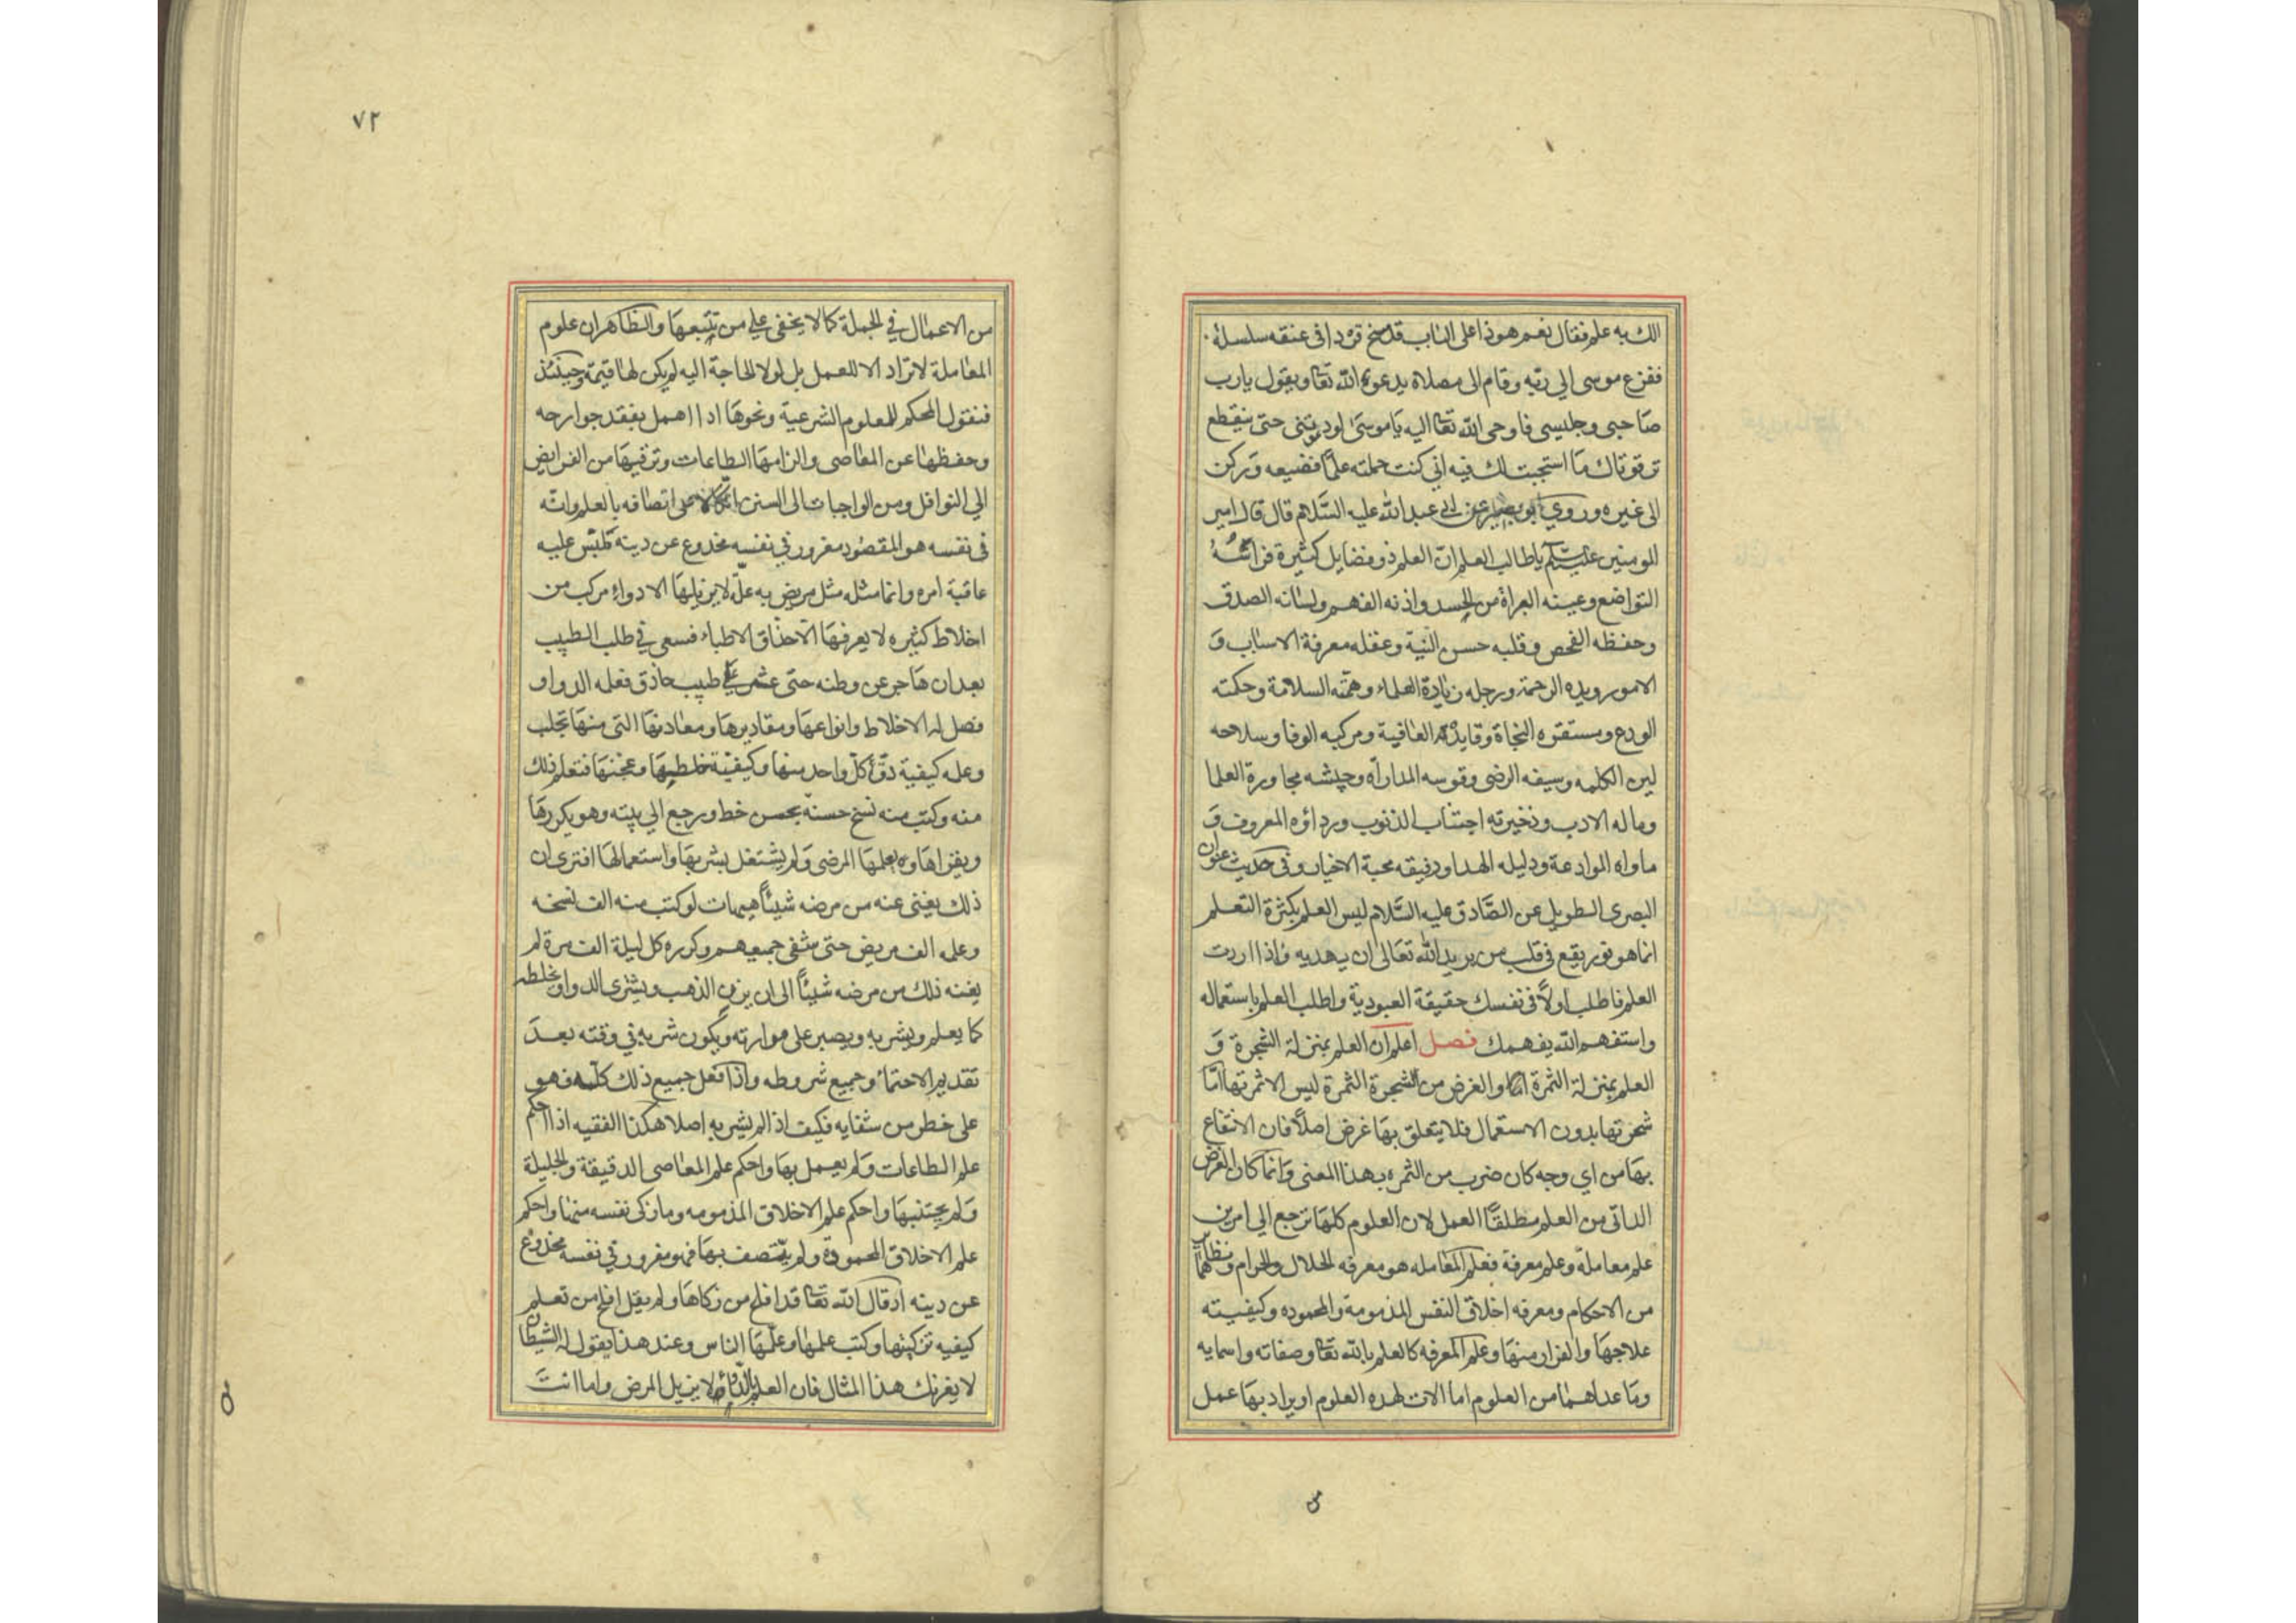 الك به علم فقال نعم هو ذا على الباب قد مسخ قردا فى عنقه سلسلة
ففزع موسى الي ربه وقام الى مصلاه يدعو الله تعا ويقول يا رب
صاحبى وجليسى فاوحى الله تعا اليه يا موسى لو دعوتنى حتى ينقطع
ترقوتاك ما استجبت لك فيه اني كنت حملته علمًا فضيعه وركن
الى غيره وروي ابو بصير عن ابى عبد الله عليه السلام قال قال امير
المومنين يا طالب العلم ان العلم ذو فضايل كثيرة فراسه
التواضع وعينه البراة من الحسد واذنه الفهم ولسانه الصدق
وحفظه الفحص وقلبه حسن النية وعقله معرفة الاسباب و
الامور ويده الرحمة ورجله زيادة العلماء وهمته السلامة وحكمته
الورع ومستقره النجاة وقايده العافية ومركبه الوفا وسلاحه
لين الكلمه وسيفه الرضى وقوسه المداراه وجيشه مجاورة العلما
وماله الادب وذخيرته اجتناب الذنوب ورداؤه المعروف و
ماواه الموادعة ودليله الهدا ورفيقه محبة الاخيار وفى حديث عنوان
البصرى الطويل عن الصادق عليه السلام ليس العلم بكثرة التعلم
انما هو نور يقع فى قلب من يريد الله تعالى ان يهديه واذا اردت
العلم فاطلب اولًا فى نفسك حقيقة العبودية واطلب العلم باستعماله
واستفهم الله يفهمك فصل اعلم ان العلم بمنزلة الشجرة و
العلم بمنزلة الثمرة والغرض من الشجرة الثمرة ليس الا ثمرتها اما
شجرتها بدون الاستعمال فلا يتعلق بها غرض اصلًا فان الانتفاع
بها من اي وجه كان ضرب من الثمره بهذا المعنى وانما كان الغرض
الذاتى من العلم مطلقًا العمل لان العلوم كلها ترجع الي امرين
علم معاملة وعلم معرفة فعلم المعامله هو معرفه الحلال والحرام ونظايرهما
من الاحكام ومعرفه اخلاق النفس المذمومة والمحموده وكيفيته
علاجها والفرار منها وعلم المعرفه كالعلم بالله تعا وصفاته واسمايه
وما عداهما من العلوم اما الات لهذه العلوم او يراد بها عمل
٧٢
من الاعمال في الجملة كما لا يخفى علي من تتبعها والظاهر ان علوم
المعاملة لا تراد الا للعمل بل لولا الحاجة اليه لم يكن لها قيمة وحينئذ
فنقول المحكم للعلوم الشرعية ونحوها اذا اهمل تفقد جوارحه
وحفظها عن المعاصى والزامها الطاعات وترقيها من الفرايض
الي النوافل ومن الواجبات الى السنن اتكالا على اتصافه بالعلم وانه
فى نفسه هو المقصود مغرور في نفسه مخدوع عن دينه ملبس عليه
عاقبة امره وانما مثله مثل مريض به علة لا يزيلها الا دواء مركب من
اخلاط كثيره لا يعرفها الا حذاق الاطباء فسعى في طلب الطبيب
بعد ان هاجر عن وطنه حتى عثر علي طبيب حاذق فعلمه الدواو
فصل له الاخلاط وانواعها ومقاديرها ومعادنها التي منها تجلب
وعلمه كيفية دق كل واحد منها وكيفية خلطها وعجنها فتعلم ذلك
منه وكتب منه نسخ حسنة بحسن خط ورجع الي بيته وهو يكررها
ويقراها ويعلمها المرضى ولم يشتغل بشربها واستعمالها افترى ان
ذلك يغنى عنه من مرضه شيئًا هيهات لو كتب منه الف نسخه
وعلمه الف مريض حتى شفى جميعهم وكرره كل ليلة الف مرة لم
يغنه ذلك من مرضه شيئًا الى ان يزن الذهب ويشترى الدواو يخلطه
كما يعلم ويشربه ويصبر على موارته ويكون شربه في وقته بعد
تقديم الاحتماء وجميع شروطه واذا فعل جميع ذلك كله فهو
على خطر من شفايه فكيف اذ الم يشربه اصلا هكذا الفقيه اذا احكم
علم الطاعات ولم يعمل بها واحكم علم المعاصى الدقيقة والجليلة
ولم يجتنبها واحكم علم الاخلاق المذمومه وما زكى نفسه منها واحكم
علم الاخلاق المحمودة ولم يتصف بها فهو مغرور في نفسه مخدوع
عن دينه اذ قال الله تعا قد افلح من زكاها ولم يقل افلح من تعلم
كيفيه تزكيتها وكتب علمها وعلمها الناس وعند هذا يقول له الشيطان
لا يغرنك هذا المثال فان العلم بالدواء لا يزيل المرض واما انت